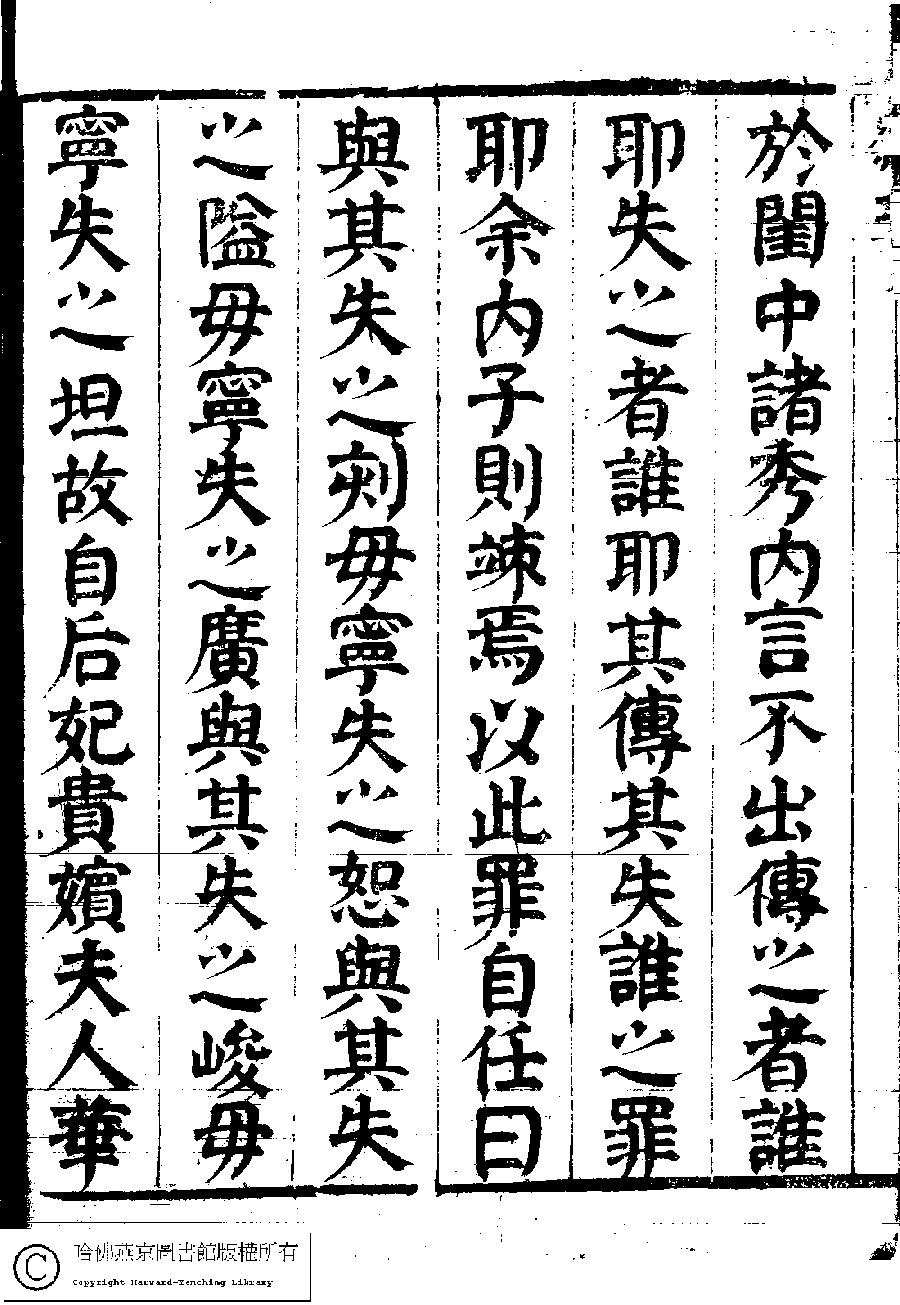 於閨中諸秀內言不出傳之者誰
耶失之者誰耶其傳其失誰之罪
耶余內子則竦焉以此罪自任曰
與其失之刻毋寧失之恕與其失
之隘毋寧失之廣與其失之峻毋
寧失之坦故自后妃貴嬪夫人華
哈佛燕京圖書館版權所有
Copyright Harvard-Yenching Library